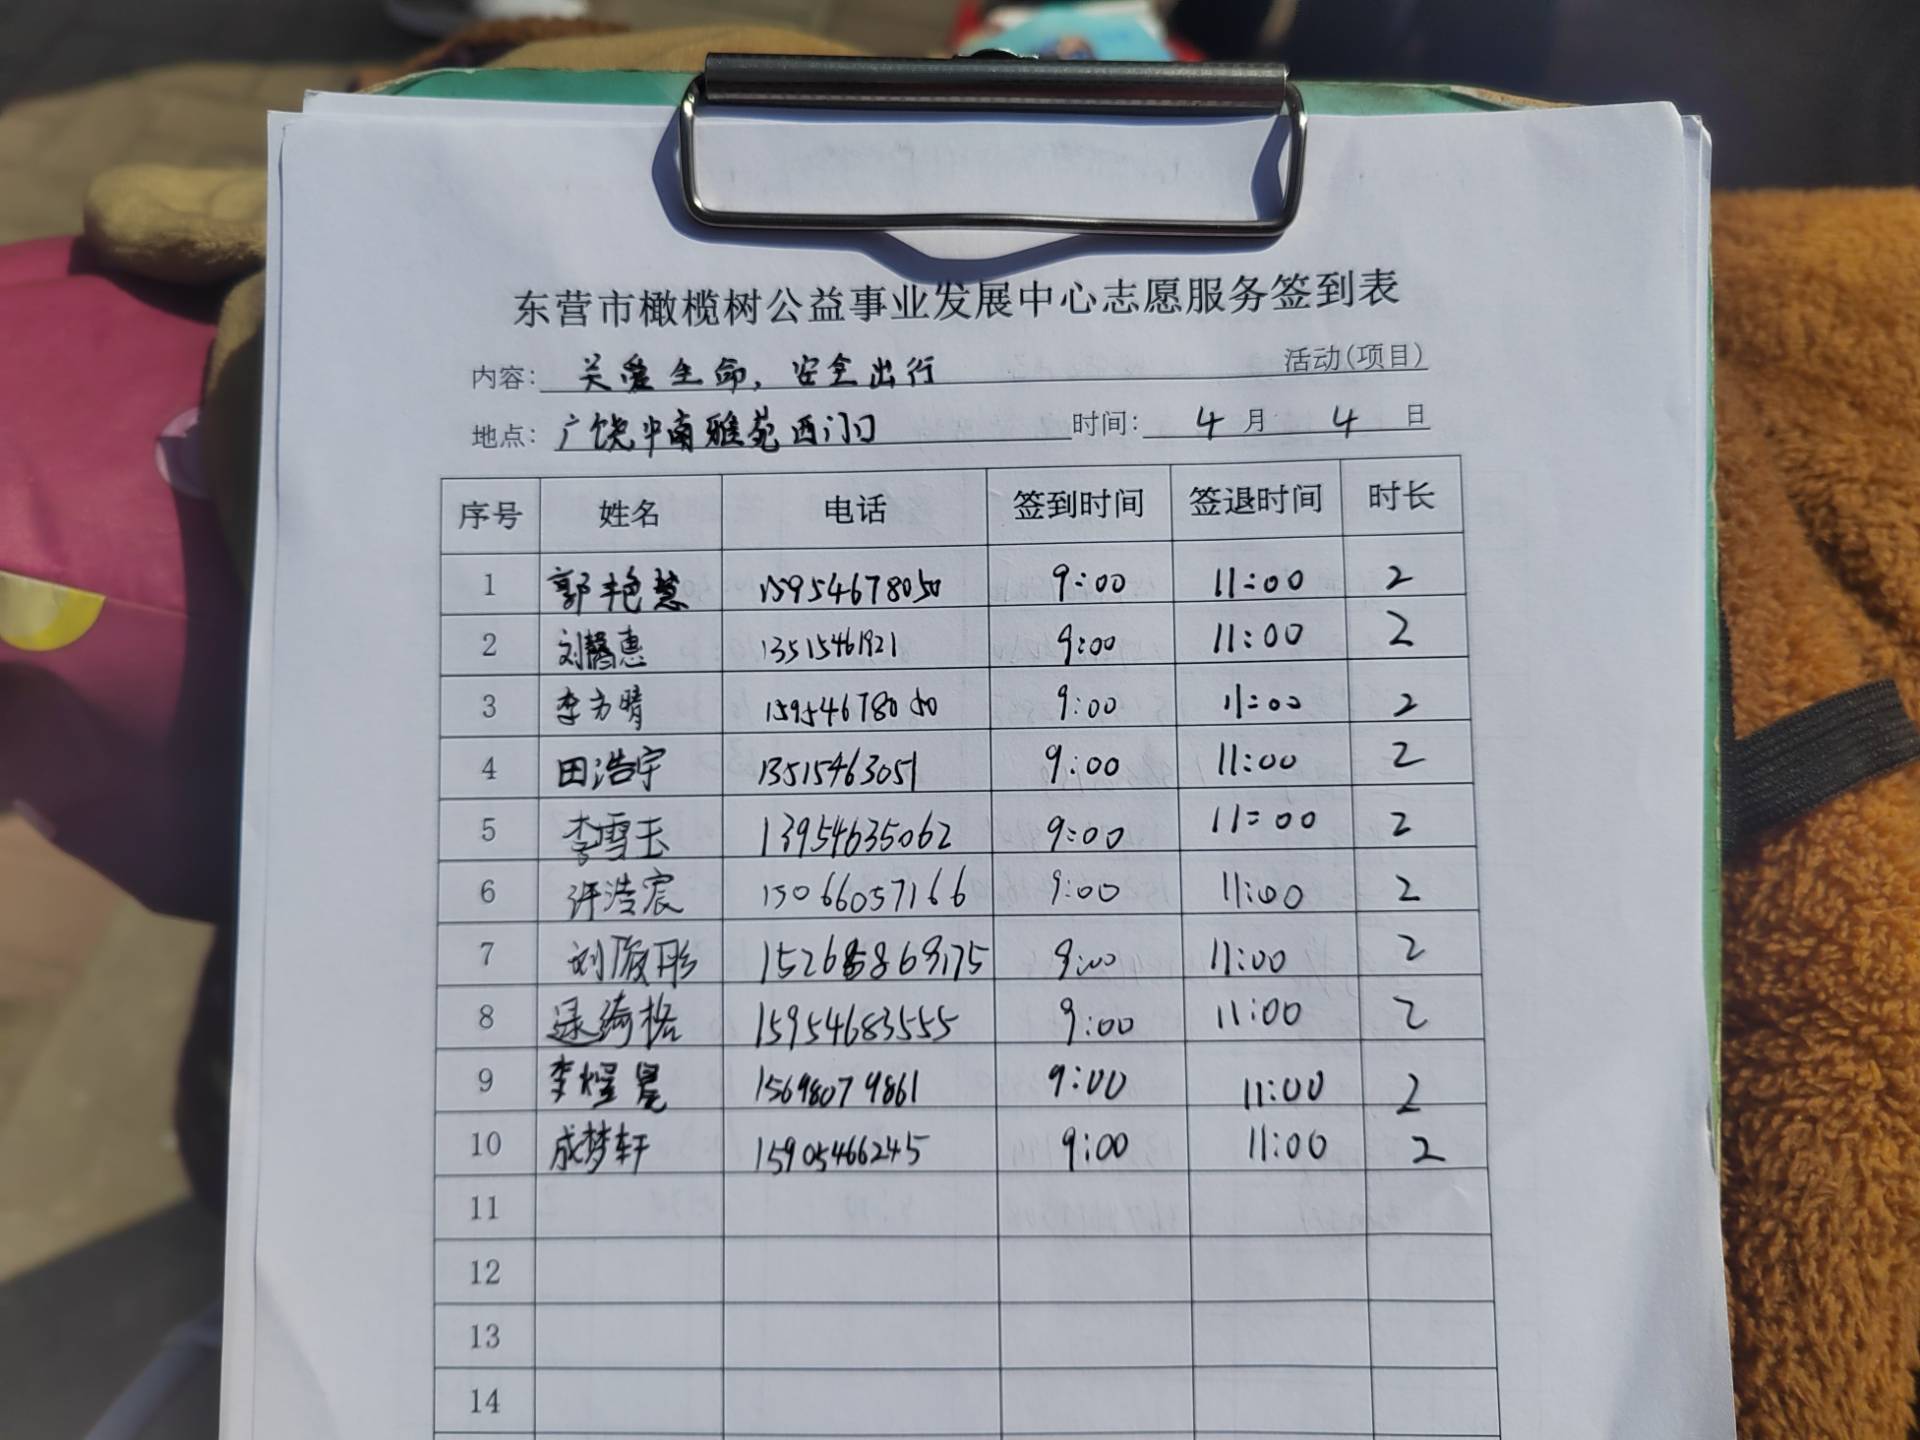 东营市橄榄树公益事业发展中心志愿服务签到表
内容: 关爱生命, 安全出行 活动(项目)
地点: 广饶中南雅苑西门口 时间: 4 月 4 日
序号 姓名 电话 签到时间 签退时间 时长
1 郭艳慧 15954678050 9:00 11:00 2
2 刘馨惠 13515461921 9:00 11:00 2
3 李方晴 15954678050 9:00 11:00 2
4 田浩宇 13515463051 9:00 11:00 2
5 李雪玉 13954635062 9:00 11:00 2
6 许浩宸 15066057166 9:00 11:00 2
7 刘 9:00 11:00 2
8 15954683555 9:00 11:00 2
9 李煜晨 15698079861 9:00 11:00 2
10 成梦轩 15905466245 9:00 11:00 2
11
12
13
14